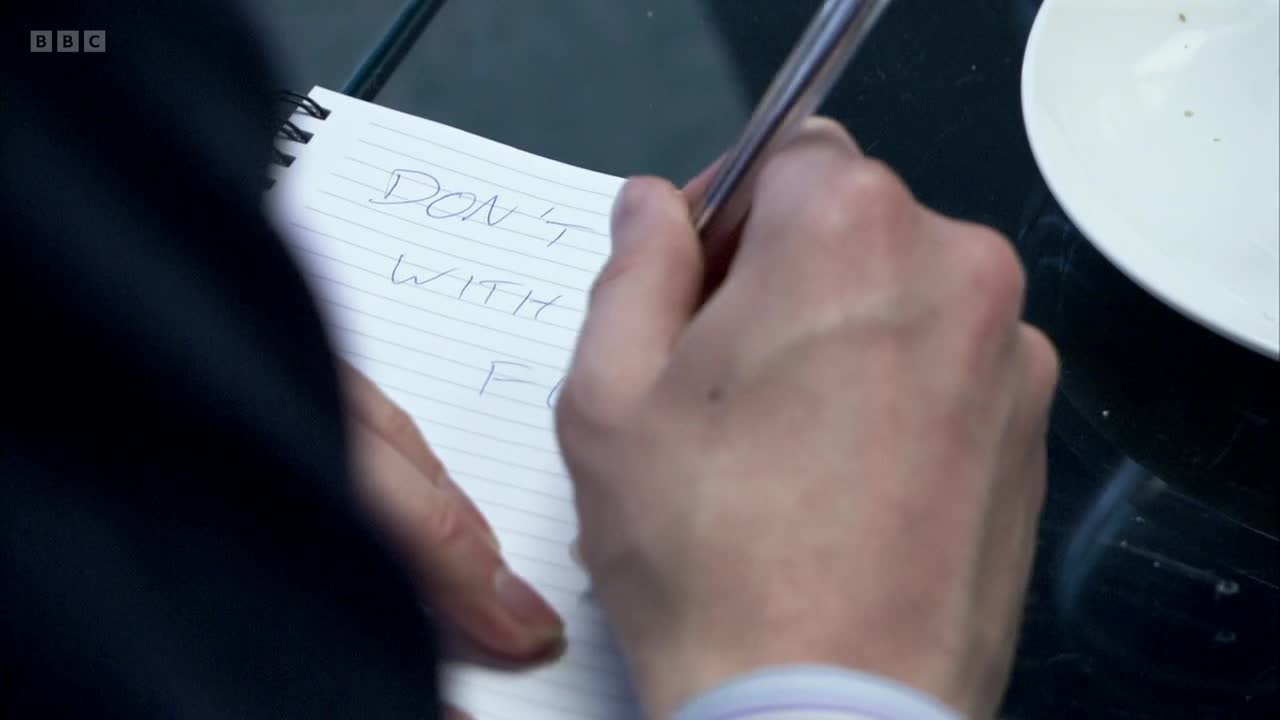 BBC
DON'T
WITH